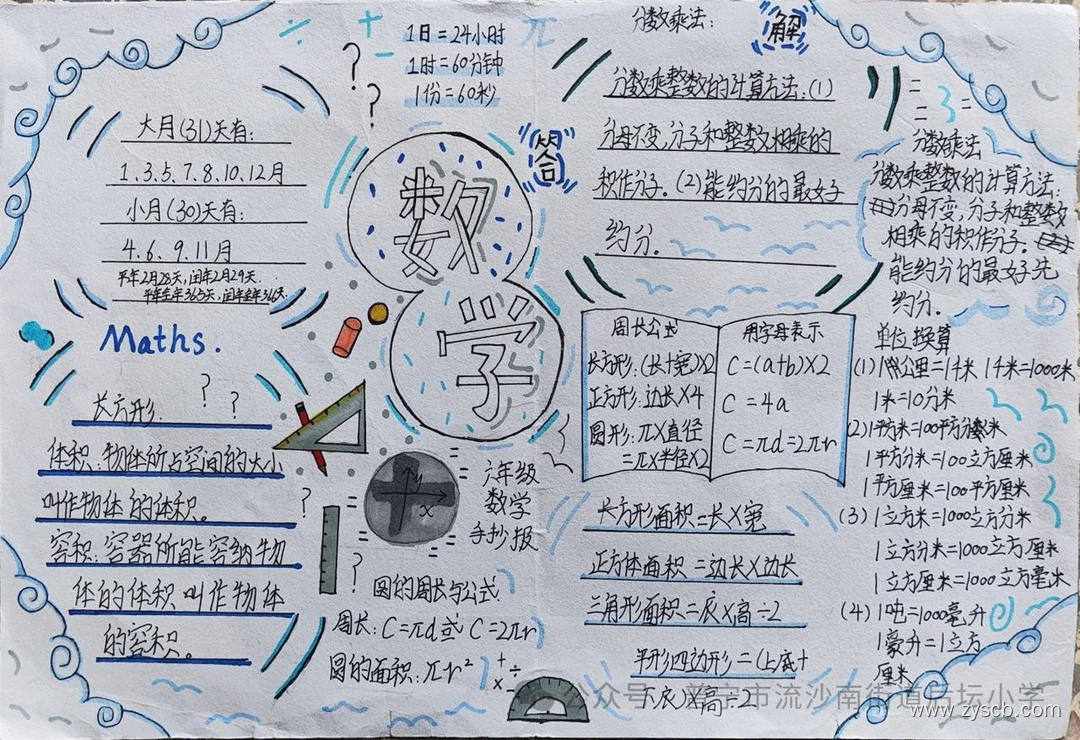 1日=24小时
1时=60分钟
1份=60秒
大月(31)天有:
1、3、5、7、8、10、12月
小月(30)天有:
4、6、9、11月
平年2月28天,闰年2月29天.
平年全年365天,闰年全年366天.
Maths.
长方形:
体积:物体所占空间的大小
叫作物体的体积。
容积:容器所能容纳物
体的体积叫作物体
的容积。
数
学
符合
六年级
数学
手抄报
y
x
圆的周长与公式:
周长:C=πd或 C=2πr
圆的面积:πr²
分数乘法:
解
分数乘整数的计算方法:(1)
分母不变,分子和整数相乘的
积作分子。(2)能约分的最好子
约分.
周长公式
长方形:(长+宽)×2
正方形:边长×4
圆形:π×直径
=π×半径×2
用字母表示
C=(a+b)×2
C=4a
C=πd=2πr
长方形面积=长×宽
正方体面积=边长×边长
三角形面积=底×高÷2
平形四边形=(上底+
下底)×高÷2
分数乘法
分数乘整数的计算方法:
分母不变,分子和整数
相乘的积作分子.
能约分的最好先
约分.
单位换算
(1)1公里=1千米 1千米=1000米
1米=10分米
(2)1平方米=100平方分米
1平方分米=100立方厘米
1平方厘米=100平方厘米
(3)1立方米=1000立方分米
1立方分米=1000立方厘米
1立方厘米=1000立方毫米
(4)1吨=1000毫升
1豪升=1立方
厘米
公众号 普宁市流沙南街道后坛小学
www.zyscb.com